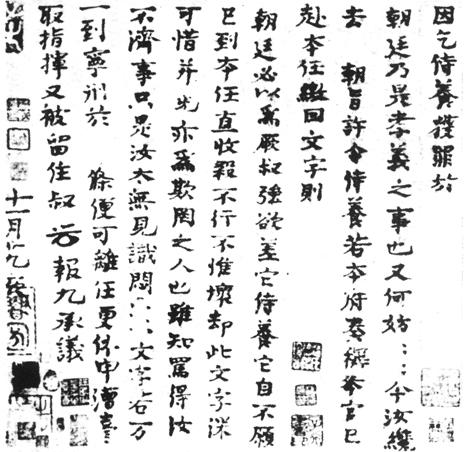 因乞侍養獲罪於
朝廷乃是孝義之事也又何妨：：今汝纔
去 朝旨許令侍養若本府奏 本官已
赴本任繳回文字則
朝廷必以為厥叔強欲差它侍養它自不願
已到本任直收殺不行不惟壞却此文字深
可惜并 亦為欺罔之人也雖知罵得汝
不濟事只是汝太無見識閑：：文字右万
一到寧州於 條便可離任更休申漕臺
取指揮又被留住叔 報九承議
十一月九